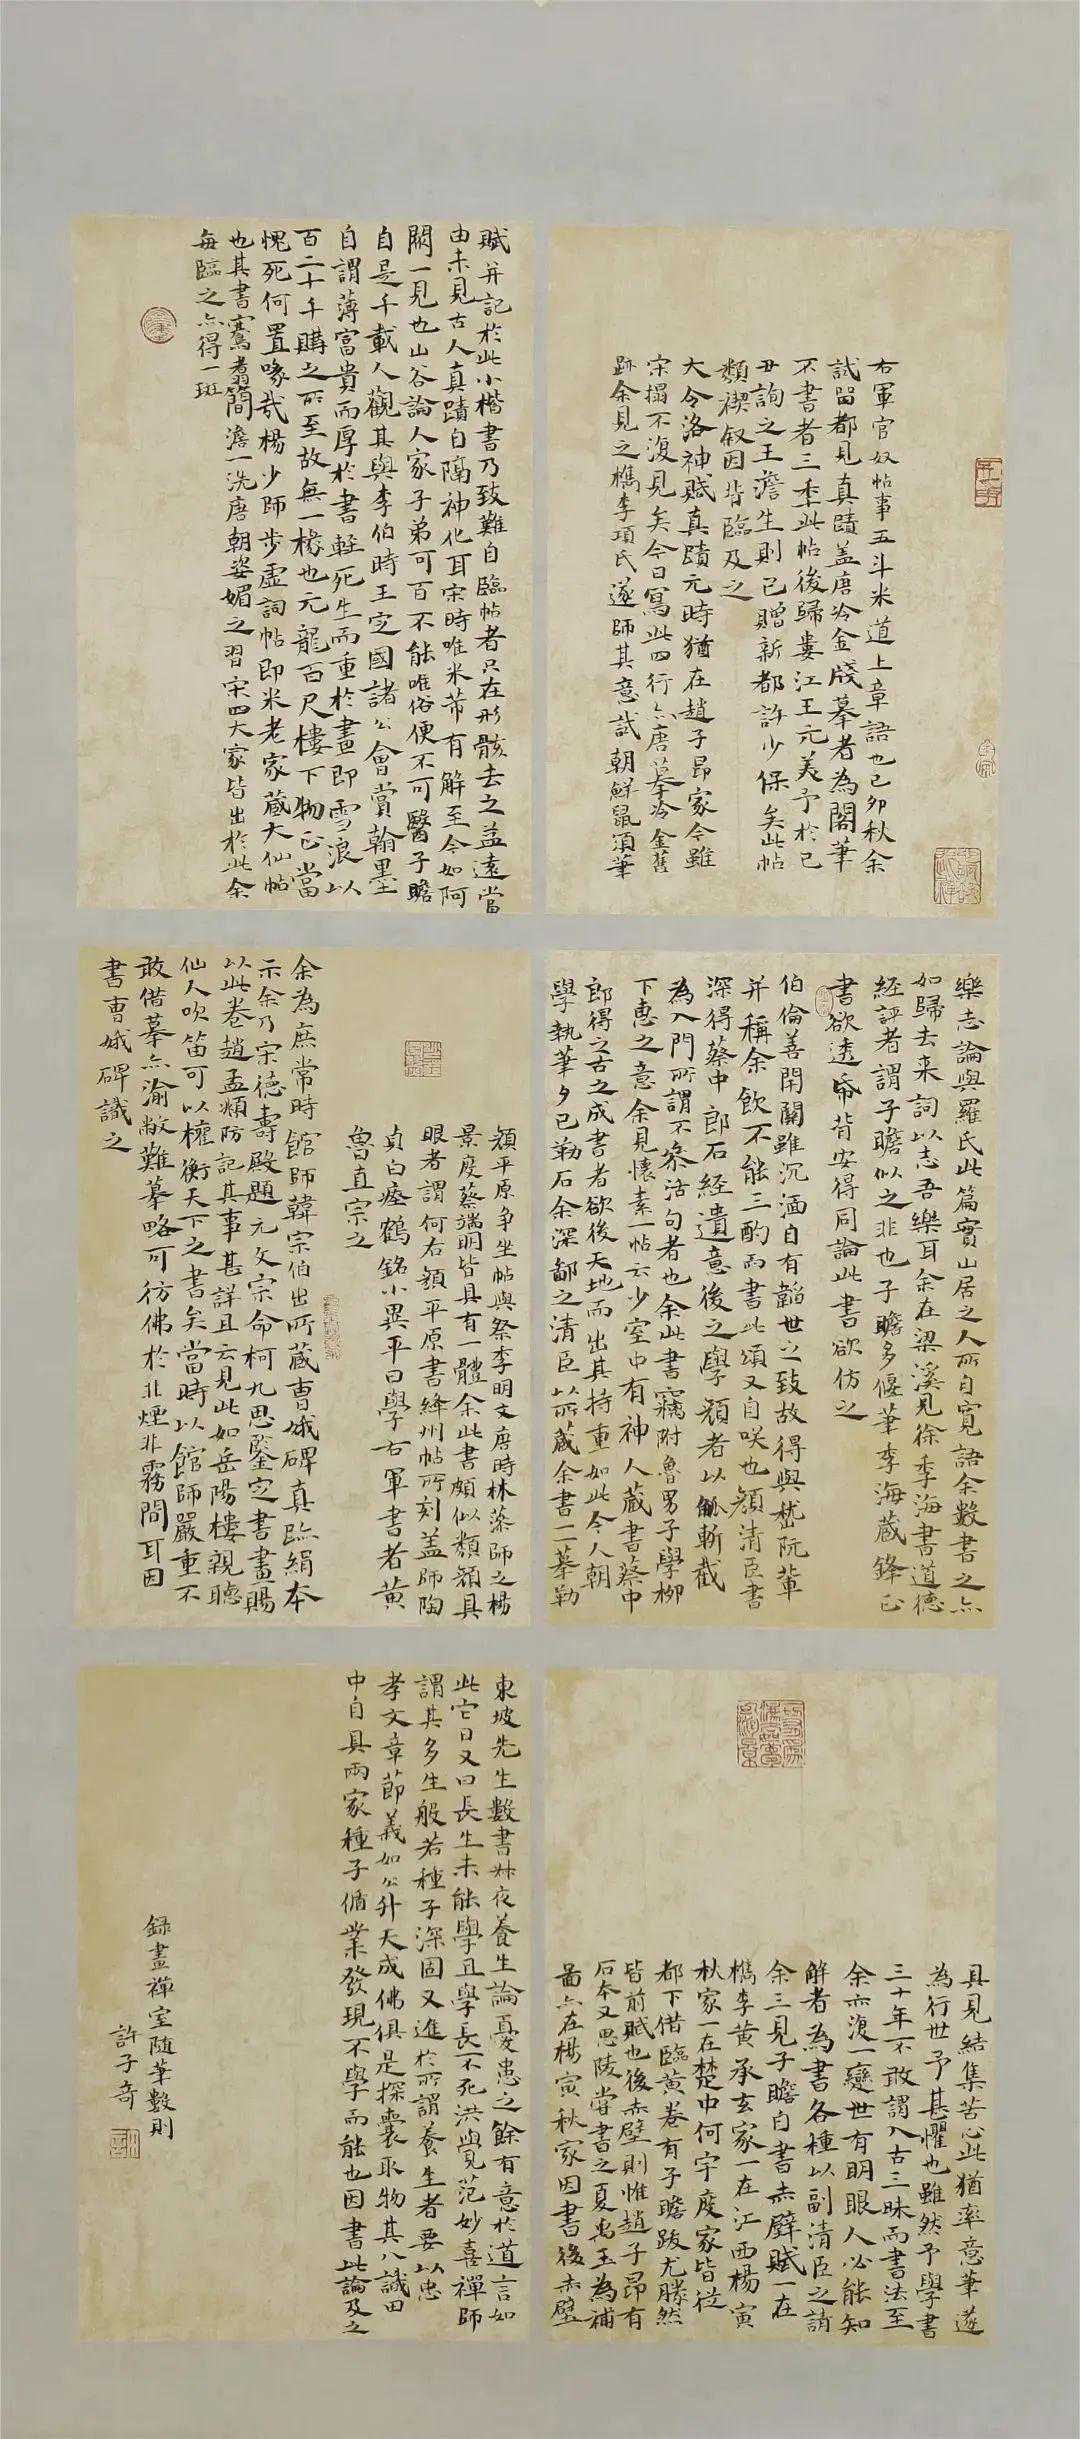 右軍官奴帖事五斗米道上章語也己卯秋余
試留都見真蹟蓋唐冷金牋摹者為閣筆
不書者三年此帖後歸婁江王元美予於己
丑詢之王澹生則已贈新都許少保矣此帖
類禊叙因背臨及之
大令洛神賦真蹟元時猶在趙子昂家今雖
宋搨不復見矣今日寫此四行亦唐摹冷金舊
跡余見之檇李項氏遂師其意試朝鮮鼠須筆
賦并記於此小楷書乃致難自臨帖者只在形骸去之益遠當
由未見古人真蹟自隔神化耳宋時唯米芾有解至今如阿
閦一見也山谷論人家子弟可百不能唯俗便不可醫子瞻
自是千載人觀其與李伯時王定國諸公會賞翰墨
自謂薄富貴而厚於書輕死生而重於畫即雪浪以
百二十千購之所至故無一椽也元龍百尺樓下物正當
愧死何置喙哉楊少師步虛詞帖即米老家藏大仙帖
也其書騫翥簡澹一洗唐朝姿媚之習宋四大家皆出於此余
每臨之亦得一斑
樂志論與羅氏此篇實山居之人所自寬語余數書之亦
如歸去来詞以志吾樂耳余在梁溪見徐季海書道德
經評者謂子瞻似之非也子瞻多偃筆季海藏鋒正
書欲透帋背安得同論此書欲仿之
伯倫善閉關雖沉湎自有韜世之致故得與嵇阮輩
并稱余飲不能三酌而書此頌又自咲也顏清臣書
深得蔡中郎石經遺意後之學顏者以觚斬截
為入門所謂不叅活句者也余此書竊附魯男子學柳
下惠之意余見懷素一帖云少室中有神人藏書蔡中
郎得之古之成書者欲後天地而出其持重如此今人朝
學執筆夕已勒石余深鄙之清臣以所藏余書一二摹勒
顏平原争坐帖與祭李明文唐時林藻師之楊
景度蔡端明皆具有一體余此書頗似類顏具
眼者謂何右顏平原書絳州帖所刻蓋師陶
貞白瘞鶴銘小異平日學右軍書者黃
魯直宗之
余為庶常時館師韓宗伯出所藏曹娥碑真臨絹本
示余乃宋德壽殿題元文宗命柯九思鑒定書畫賜
以此卷趙孟頫防記其事甚詳且云見此如岳陽樓親聽
仙人吹笛可以權衡天下之書矣當時以館師嚴重不
敢借摹亦渝敝難摹略可彷佛於非煙非霧間耳因
書曹娥碑識之
具見結集苦心此猶率意筆遂
為行世予甚懼也雖然予學書
三十年不敢謂入古三昧而書法至
余亦復一變世有明眼人必能知
解者為書各種以副清臣之請
余三見子瞻自書赤壁賦一在
檇李黃承玄家一在江西楊寅
秋家一在楚中何宇度家皆從
都下借臨黃卷有子瞻跋尤勝然
皆前賦也後赤壁則惟趙子昂有
石本又思陵嘗書之夏禹玉為補
啚亦在楊寅秋家因書後赤壁
東坡先生數書叔夜養生論憂患之餘有意於道言如
此它日又曰長生未能學且學長不死洪覺范妙喜禪師
謂其多生般若種子深固又進於所謂養生者要以忠
孝文章節義如公升天成佛俱是探囊取物其八識田
中自具兩家種子循業發現不學而能也因書此論及之
録畫禪室随筆數則
許子奇